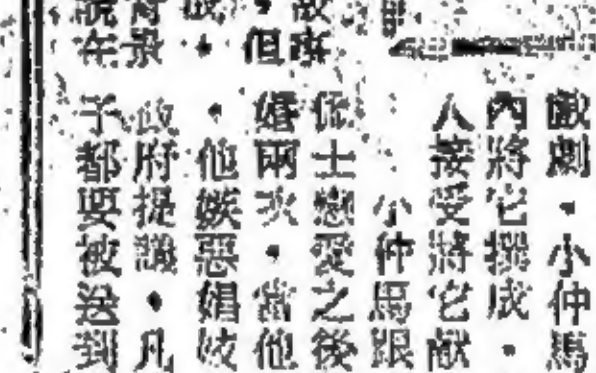 戲劇。小仲馬
內將它撰成。
人接受將它献
小仲馬跟
士戀愛之後
故 婚兩次。當他
但 。他嫉惡娼妓
政府提議。凡
在 子都要被送到